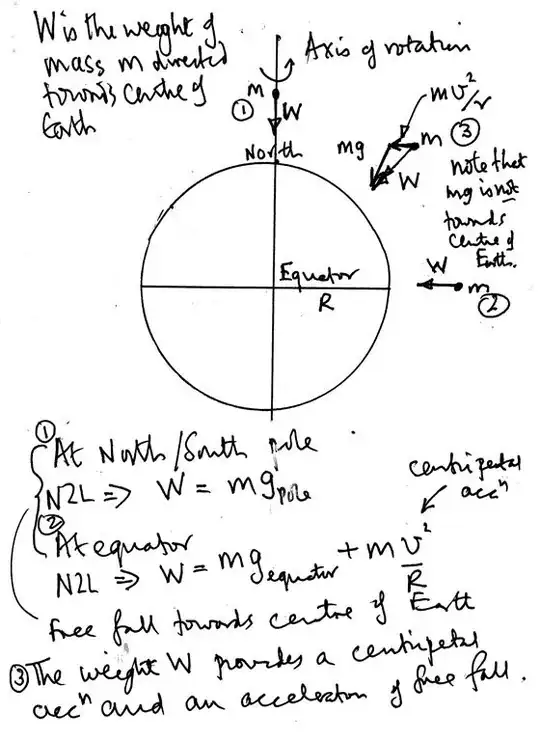 W is the weight of
mass m directed
towards centre of
Earth
Axis of rotation
m
①
W
North
mv²/r
③
m
mg
W
note that
mg is not
towards
centre of
Earth.
Equator
R
W
m
②
①
At North/South pole
N2L => W = mg pole
②
centripetal
accⁿ
At equator
N2L => W = mg equator + m v²/R
Free fall towards centre of Earth
③ The weight W provides a centripetal
accⁿ and an acceleration of free fall.